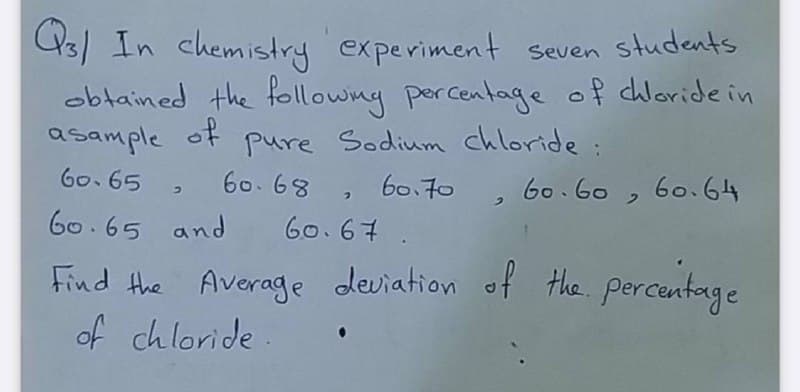 Q3/ In chemistry experiment seven students
obtained the following percentage of chloride in
a sample of pure Sodium chloride :
60.65 , 60.68 , 60.70 , 60.60 , 60.64
60.65 and 60.67 .
Find the Average deviation of the percentage
of chloride .